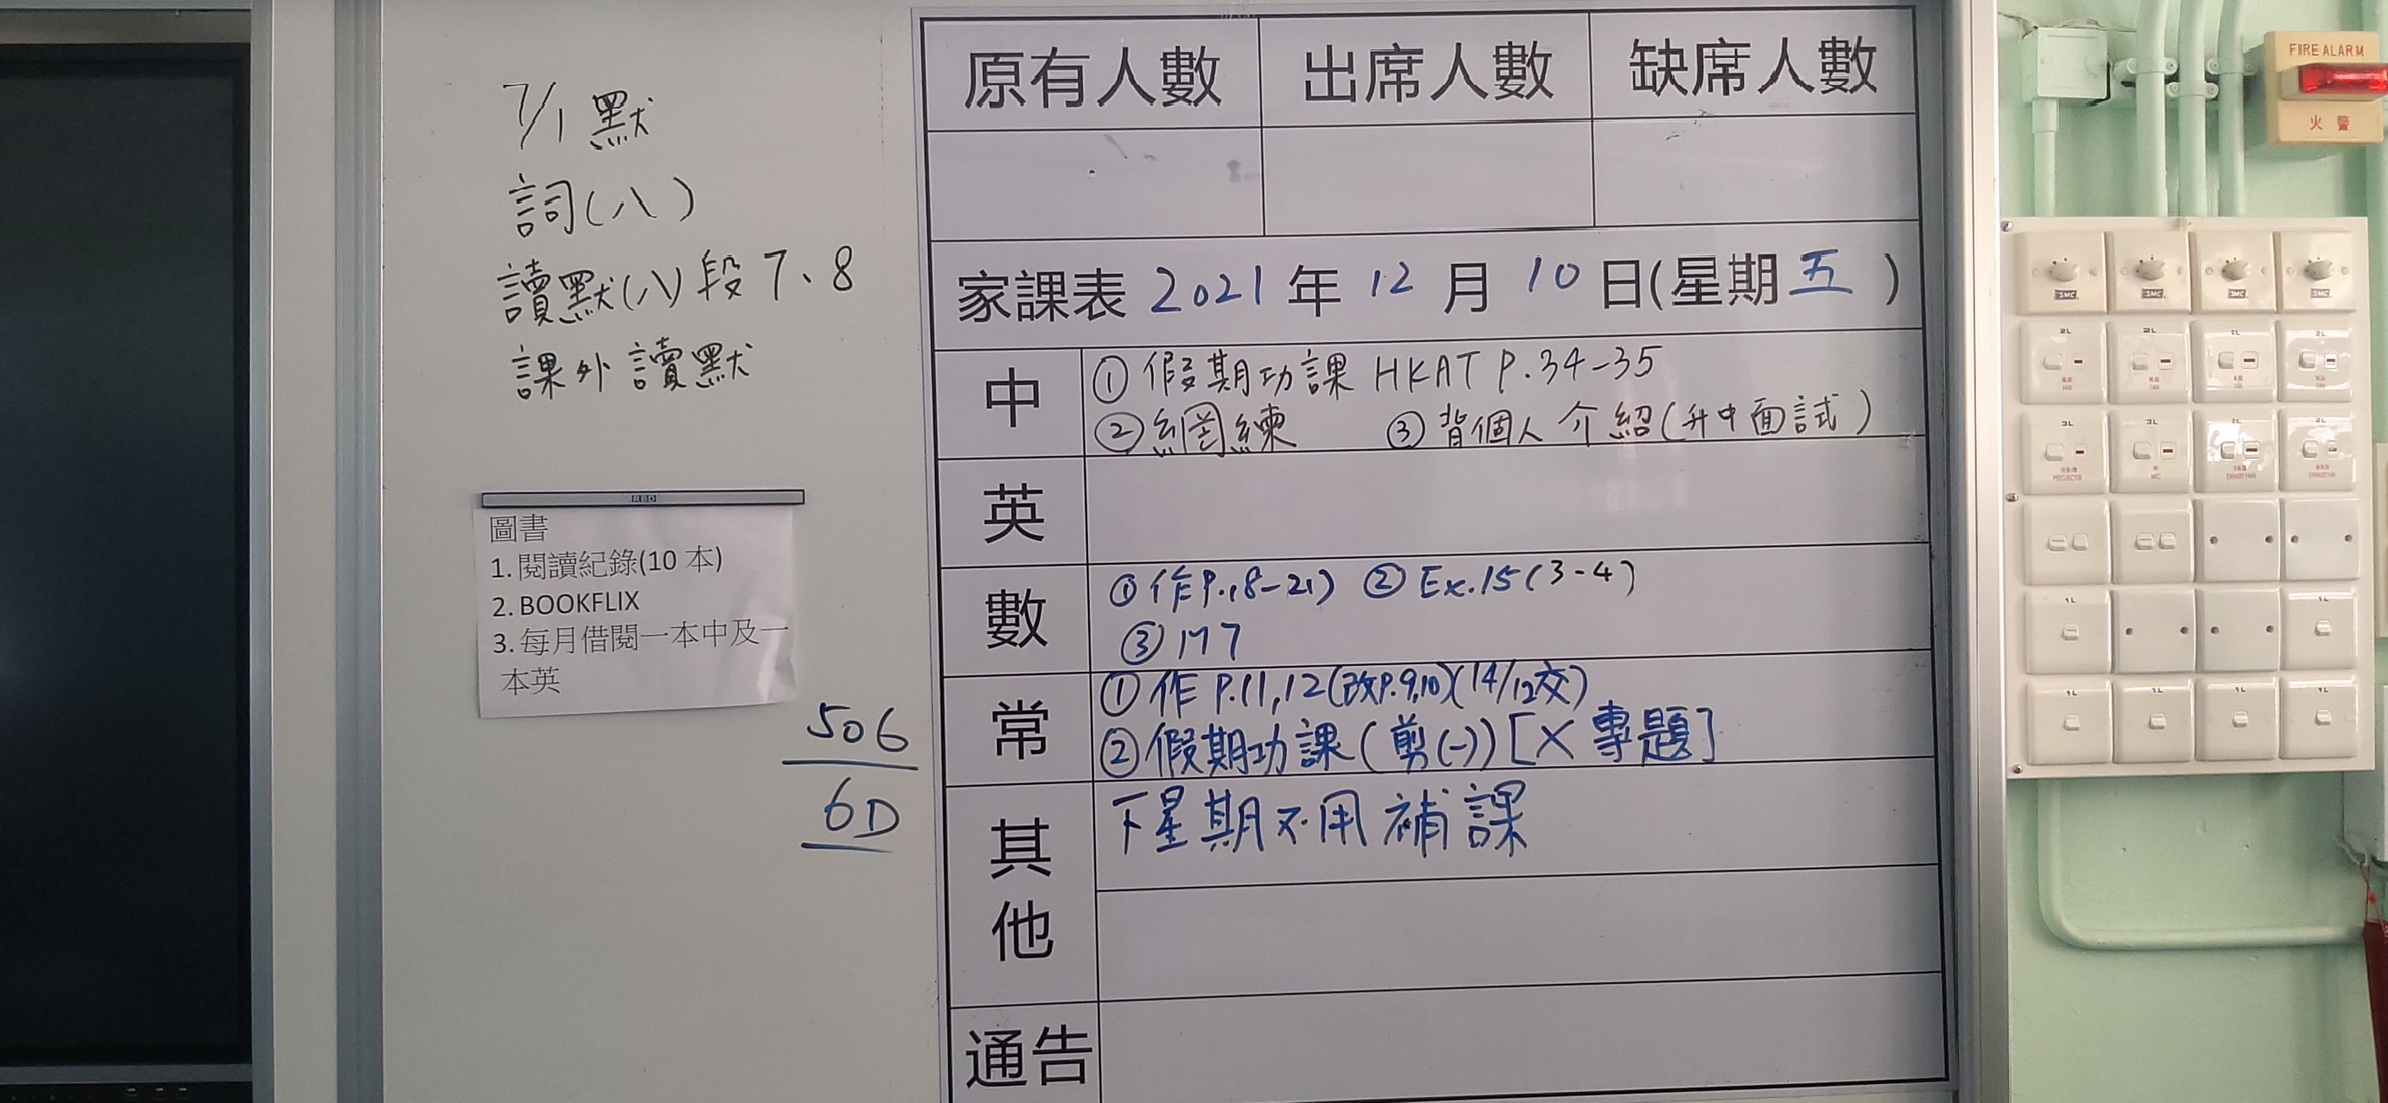 7/1 默
詞(八)
讀默(八)段7、8
課外讀默
RBD
圖書
1. 閱讀紀錄(10 本)
2. BOOKFLIX
3. 每月借閱一本中及一
本英
506
6D
原有人數 出席人數 缺席人數
家課表 2021 年 12 月 10 日(星期 五 )
中 ① 假期功課 HKAT P.34-35
② 網練 ③ 背個人介紹(升中面試)
英
數 ① 作P.18-21) ② Ex.15(3-4)
③ M7
常 ① 作 P.11,12(改P.9,10)(14/12交)
② 假期功課(剪(一))[X 專題]
其他 下星期不用補課
通告
FIRE ALARM
火警
SMC SMC SMC SMC
2L 2L 2L 2L
FAN FAN FAN FAN
3L 3L 2L 2L
PROJECTOR MIC EXHAUST FAN EXHAUST FAN
1L 1L
1L 1L 1L 1L